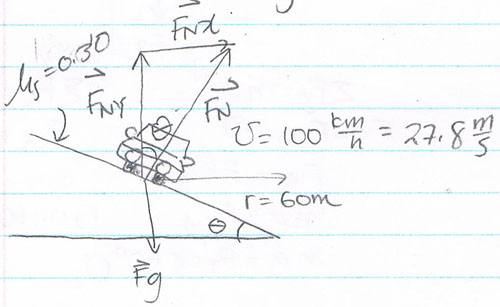 F⃗NX
μs=0.30
F⃗NY
θ
F⃗N
v = 100 km/h = 27.8 m/s
r = 60m
θ
F⃗g